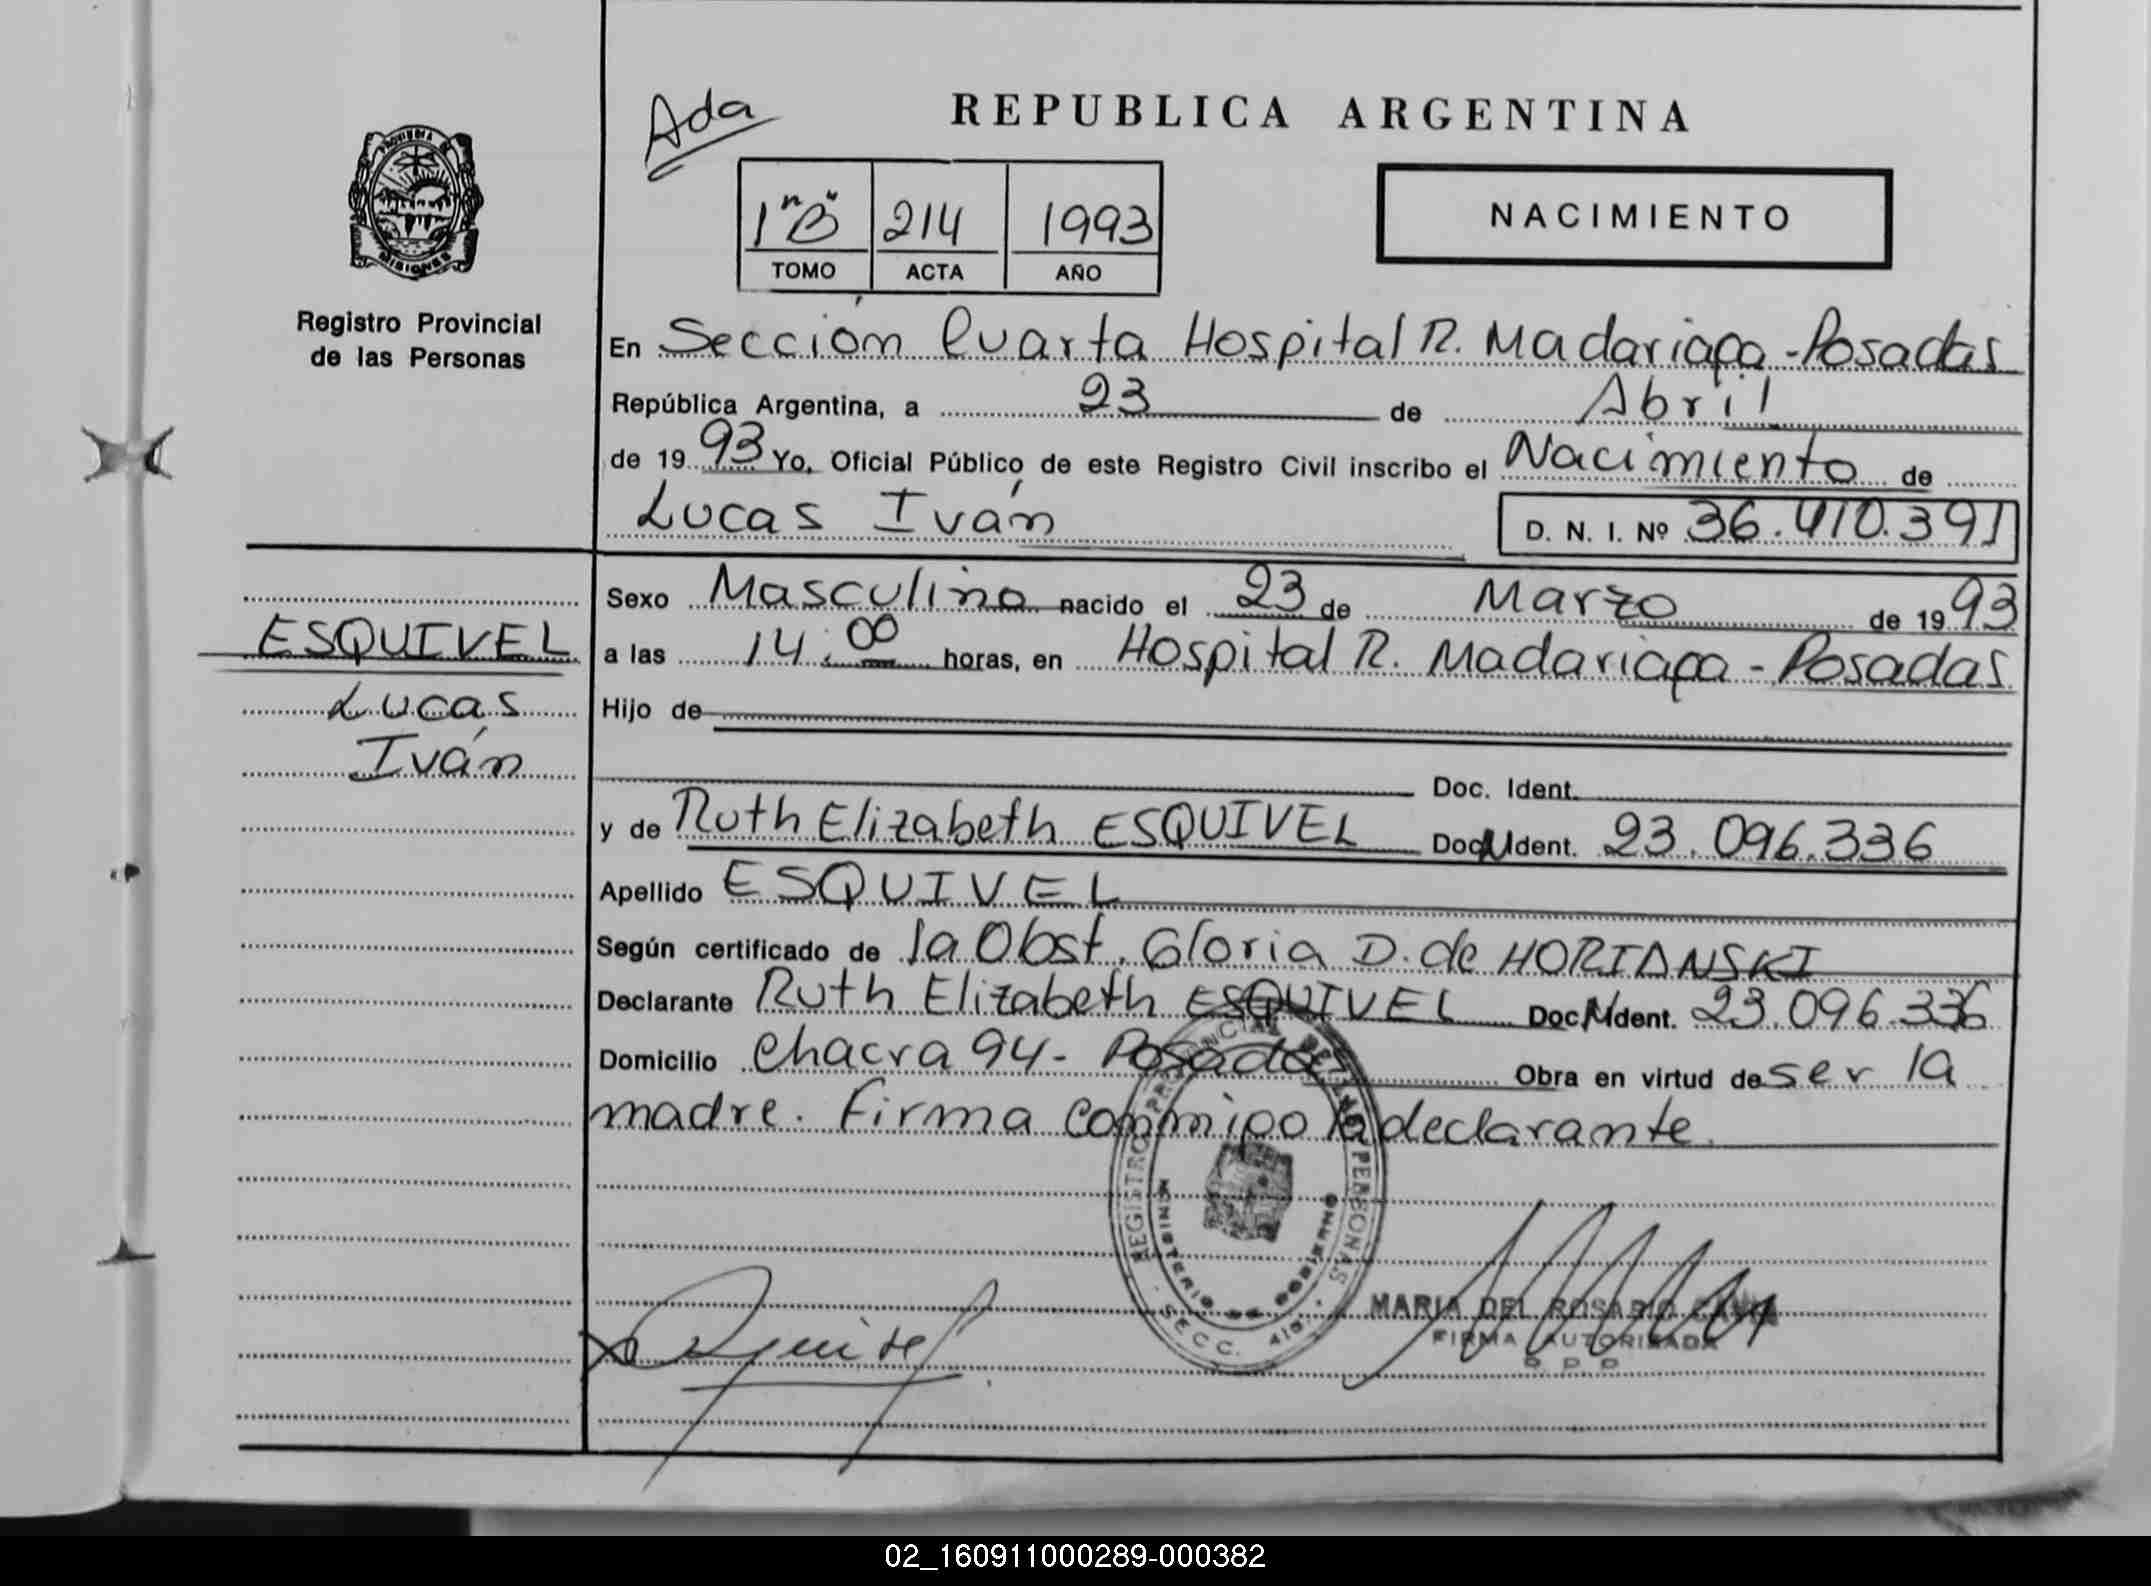 PROVINCIA DE
MISIONES
Registro Provincial
de las Personas
ESQUIVEL
Lucas
Iván
Ada
REPUBLICA ARGENTINA
1 "B" 214 1993
TOMO ACTA AÑO
NACIMIENTO
En Sección Cuarta Hospital R. Madariaga - Posadas
República Argentina, a 23 de Abril
de 19 93 Yo, Oficial Público de este Registro Civil inscribo el Nacimiento de
Lucas Iván D. N. I. Nº 36.410.391
Sexo Masculino nacido el 23 de Marzo de 19 93
a las 14:00 horas, en Hospital R. Madariaga - Posadas
Hijo de
Doc. Ident.
y de Ruth Elizabeth ESQUIVEL Doc. Ident. 23.096.336
Apellido ESQUIVEL
Según certificado de la Obst. Gloria D. de HORIANSKI
Declarante Ruth Elizabeth ESQUIVEL Doc. Ident. 23.096.336
Domicilio Chacra 94 - Posadas Obra en virtud de ser la
madre. Firma conmigo la declarante.
REGISTRO PROVINCIAL DE LAS PERSONAS
MINISTERIO DE GOBIERNO
SECC. 4ta.
MARIA DEL ROSARIO
FIRMA AUTORIZADA
02_160911000289-000382